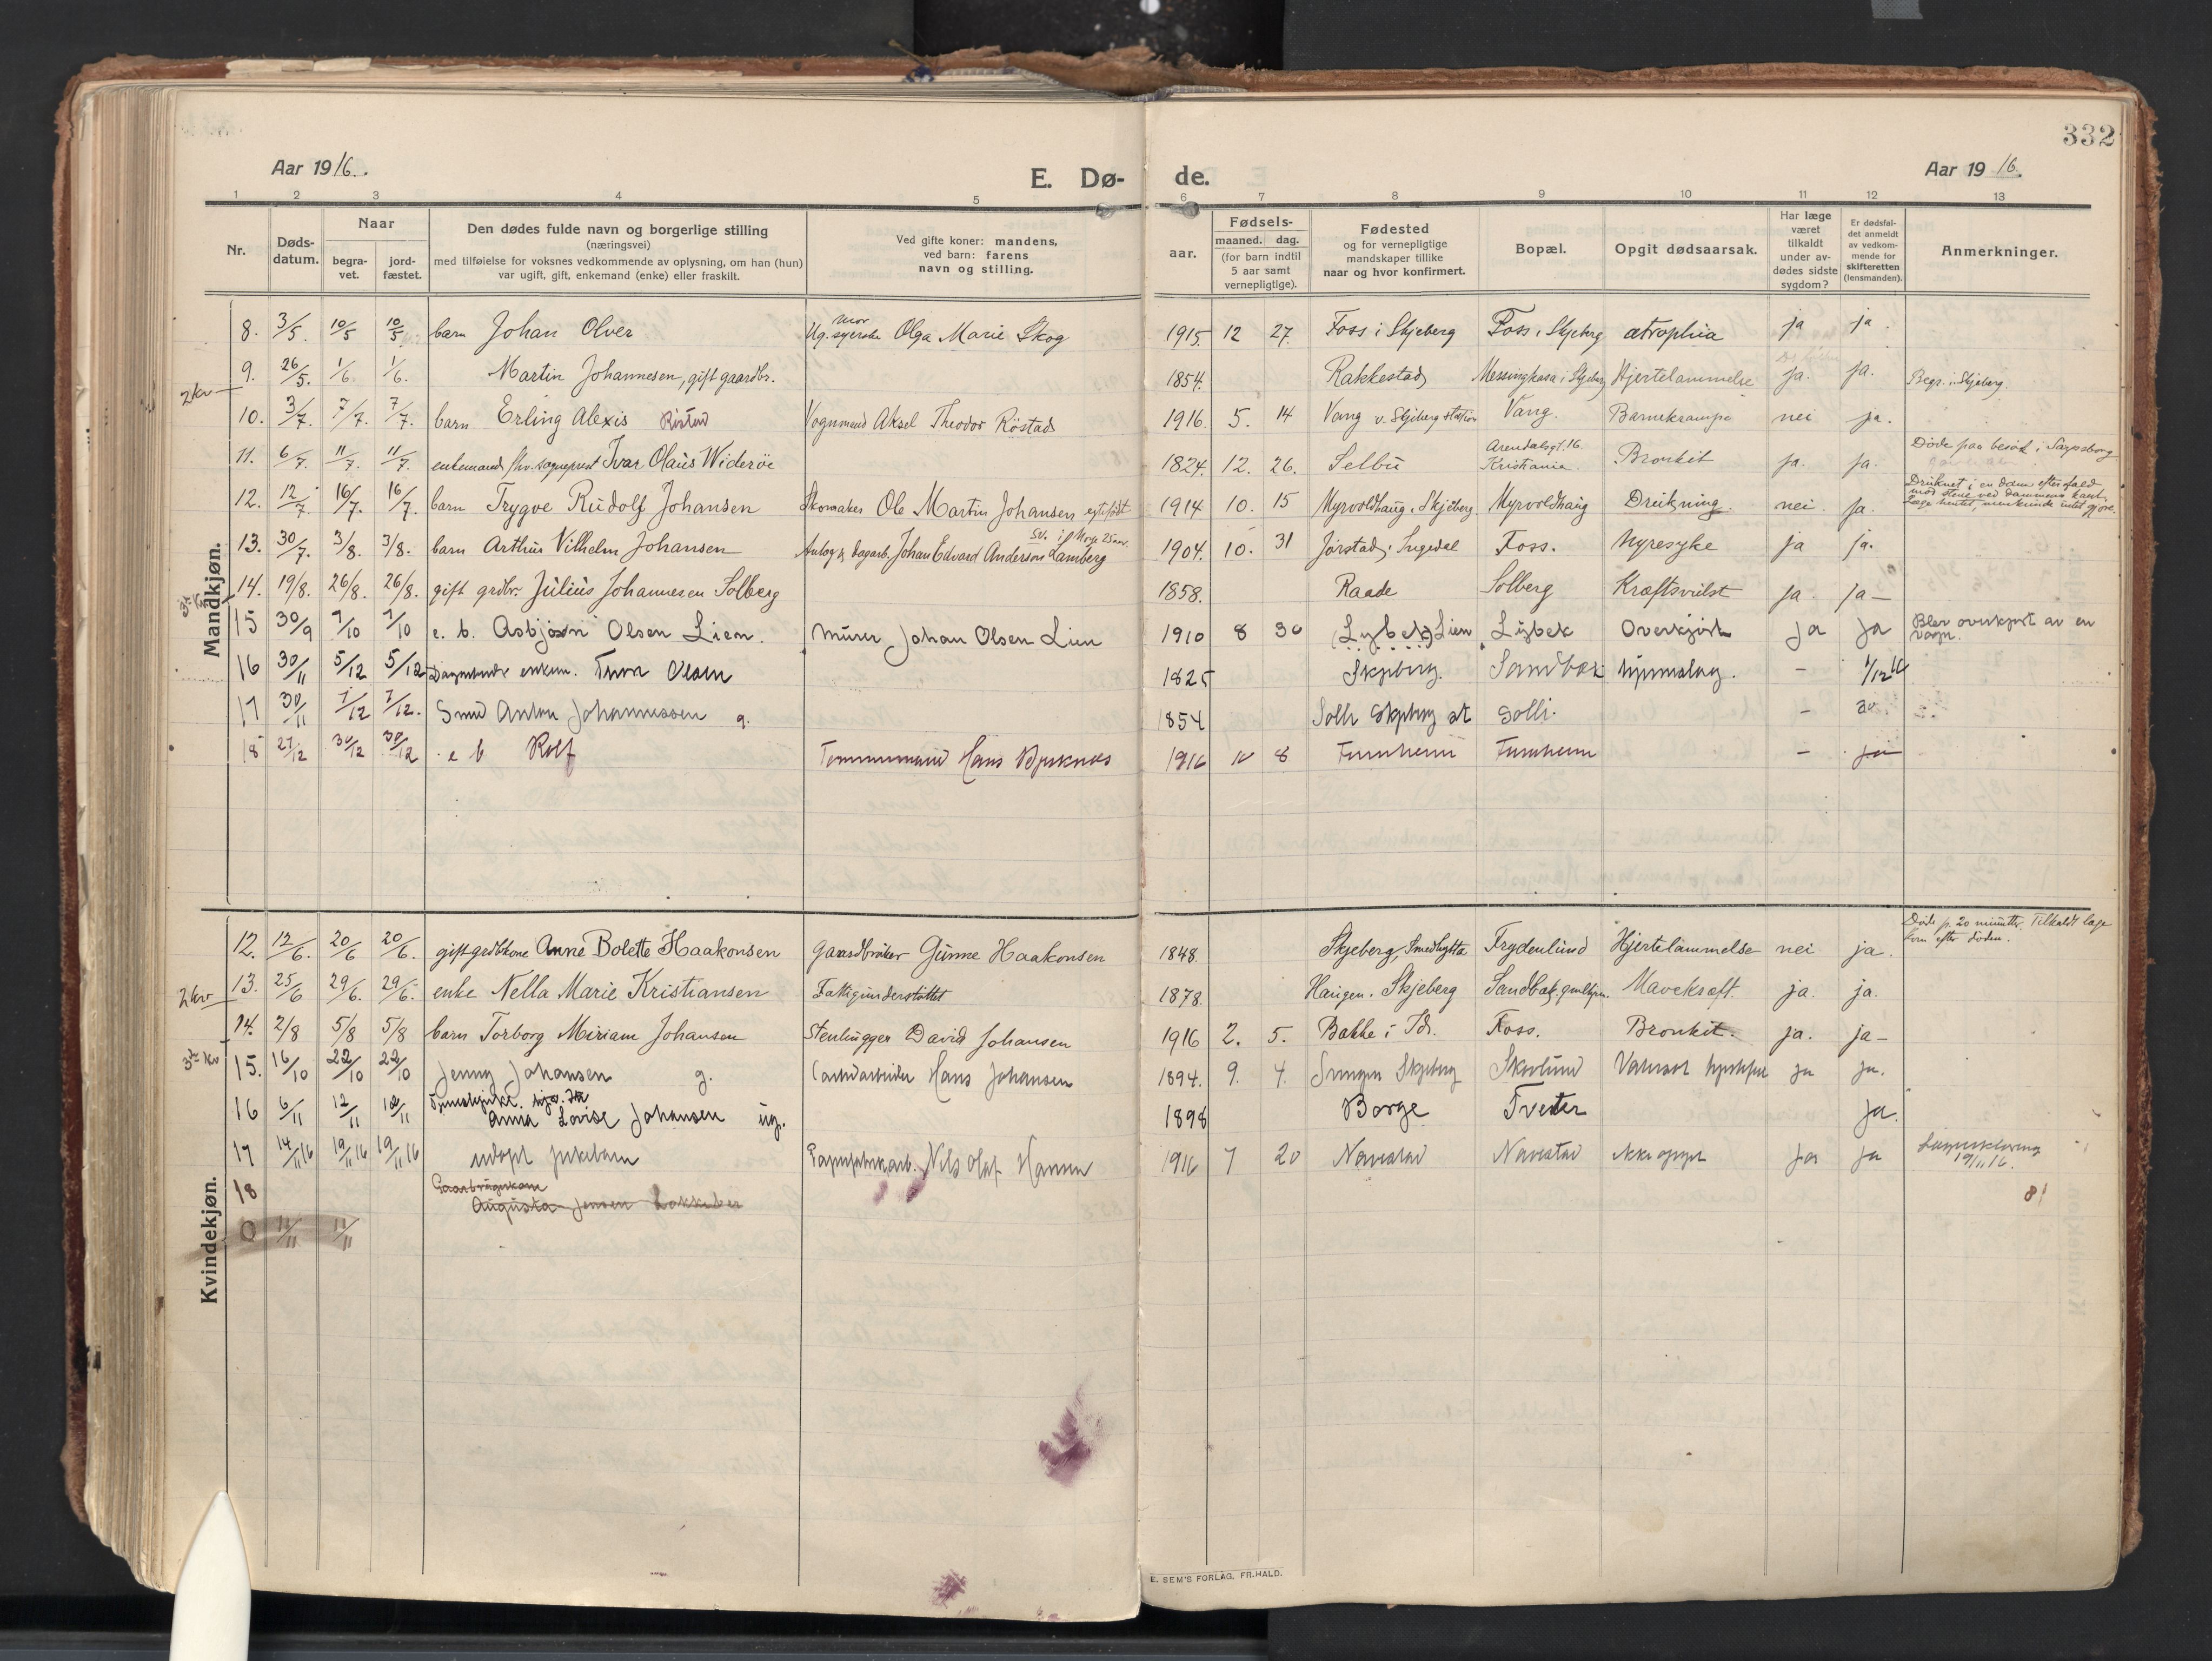 332
Aar 1916.
E. Dø-
de.
Aar 1916.
1 2 3 4 5 6 7 8 9 10 11 12 13
Nr.
Døds-
datum.
Naar
begra-
vet.
jord-
fæstet.
Den dødes fulde navn og borgerlige stilling
(næringsvei)
med tilføielse for voksnes vedkommende av oplysning, om han (hun)
var ugift, gift, enkemand (enke) eller fraskilt.
Ved gifte koner: mandens,
ved barn: farens
navn og stilling.
aar.
Fødsels-
maaned. dag.
(for barn indtil
5 aar samt
vernepligtige).
Fødested
og for vernepligtige
mandskaper tillike
naar og hvor konfirmert.
Bopæl.
Opgit dødsaarsak.
Har læge
været
tilkaldt
under av-
dødes sidste
sygdom?
Er dødsfal-
det anmeldt
av vedkom-
mende for
skifteretten
(lensmanden).
Anmerkninger.
Mandkjøn.
8. 3/5. 10/5 10/5. barn Johan Olver Ug. syerske mor Olga Marie Skog 1915. 12 27. Foss i Skjeberg Foss i Skjeberg atrophia ja ja.
2 kv
9. 26/5. 1/6. 1/6. Martin Johannesen, gift gaardbr. 1854. Rakkestad Messingkasa i Skjeberg Hjertelammelse ja. ja. Begr. i Skjeberg.
10. 3/7. 7/7. 7/7. barn Erling Alexis Röstad Vognmand Aksel Theodor Röstad 1916. 5. 14 Vang v. Skjeberg station Vang. Barnekrampe nei ja.
11. 6/7. 11/7. 11/7. enkemand, fhv. sogneprest Ivar Olaus Wideröe 1824. 12. 26. Selbu Arendalsgt. 16. Kristiania. Bronkit ja. ja. Döde paa besök i Sarpsborg
12. 12/7 16/7. 16/7. barn Trygve Rudolf Johansen Skomaker Ole Martin Johansen egtefödt 1914 10. 15 Myrvoldhaug, Skjeberg. Myrvoldhaug Drukning. nei. ja. Druknet i en dam efter fald
mot stene ved dammens kant.
Læge hentet, men kunde intet gjøre.
13. 30/7. 3/8. 3/8. barn Arthur Vilhelm Johansen dagarb. Johan Edvard Anderson Lamberg 1904. 10. 31 Jörstad, Ingedal Foss. Nyresyke ja ja.
14. 19/8. 26/8. 26/8. gift grdbr. Julius Johannesen Solberg 1858. Raade Solberg Kræftsvulst ja. ja-
15 30/9 7/10 7/10 e. b. Asbjørn Olsen Lien. Murer Johan Olsen Lien 1910 8 30 (Lybek) Lien Lybek Overkjørt ja ja Blev overkjørt av en
vogn.
16 30/11 5/12 5/12 enkem. Olsen 1825 Skjeberg. Sandbæk hjerneslag. - 1/12 16
17 30/11 7/12 7/12. Smed Anton Johannessen g. 1854 Solli Skjeberg st Solli. -
18 27/12 30/12 30/12 e b Rolf Tømmermand Hans 1916 10 8 - ja
Kvindekjøn.
12. 12/6. 20/6 20/6. gift grdbrkone Anne Bolette Haakonsen Gaardbruker Gunne Haakonsen 1848. Skjeberg, Smedhytta Frydenlund Hjertelammelse nei ja. Döde p. 20 minutter. Tilkaldt læge
kom efter döden.
2 kv
13. 25/6 29/6. 29/6. enke Nella Marie Kristiansen Fattigunderstöttet 1878. Haugen. Skjeberg Sandbak, Mavekræft. ja. ja.
14. 2/8 5/8 5/8 barn Torborg Miriam Johansen Stenhugger David Johansen 1916 2. 5. Bakke i Id. Foss. Bronkit. ja. ja-
15. 16/10 22/10 22/10 Jenny Johansen g. arbeider Hans Johansen 1894. 9. 4. Skjeberg Skovlund ja ja.
16 6/11 12/11 12/11 Tjenestepike
Anna Lovise Johansen ug. 1898 Borge Tveter ja.
17 14/11 16 19/11 16 19/11 16 udøpt pikebarn Papirfabrikarb. Nils Olaf Hansen 1916 7 20 Navestad Navestad Ikke opgit ja ja Lægeerklæring
19/11 16.
18 Gaardbrukerkone
Augusta Jensen Løkkeber
81
0 11/11 11/11
E. SEM'S FORLAG, FR.HALD.